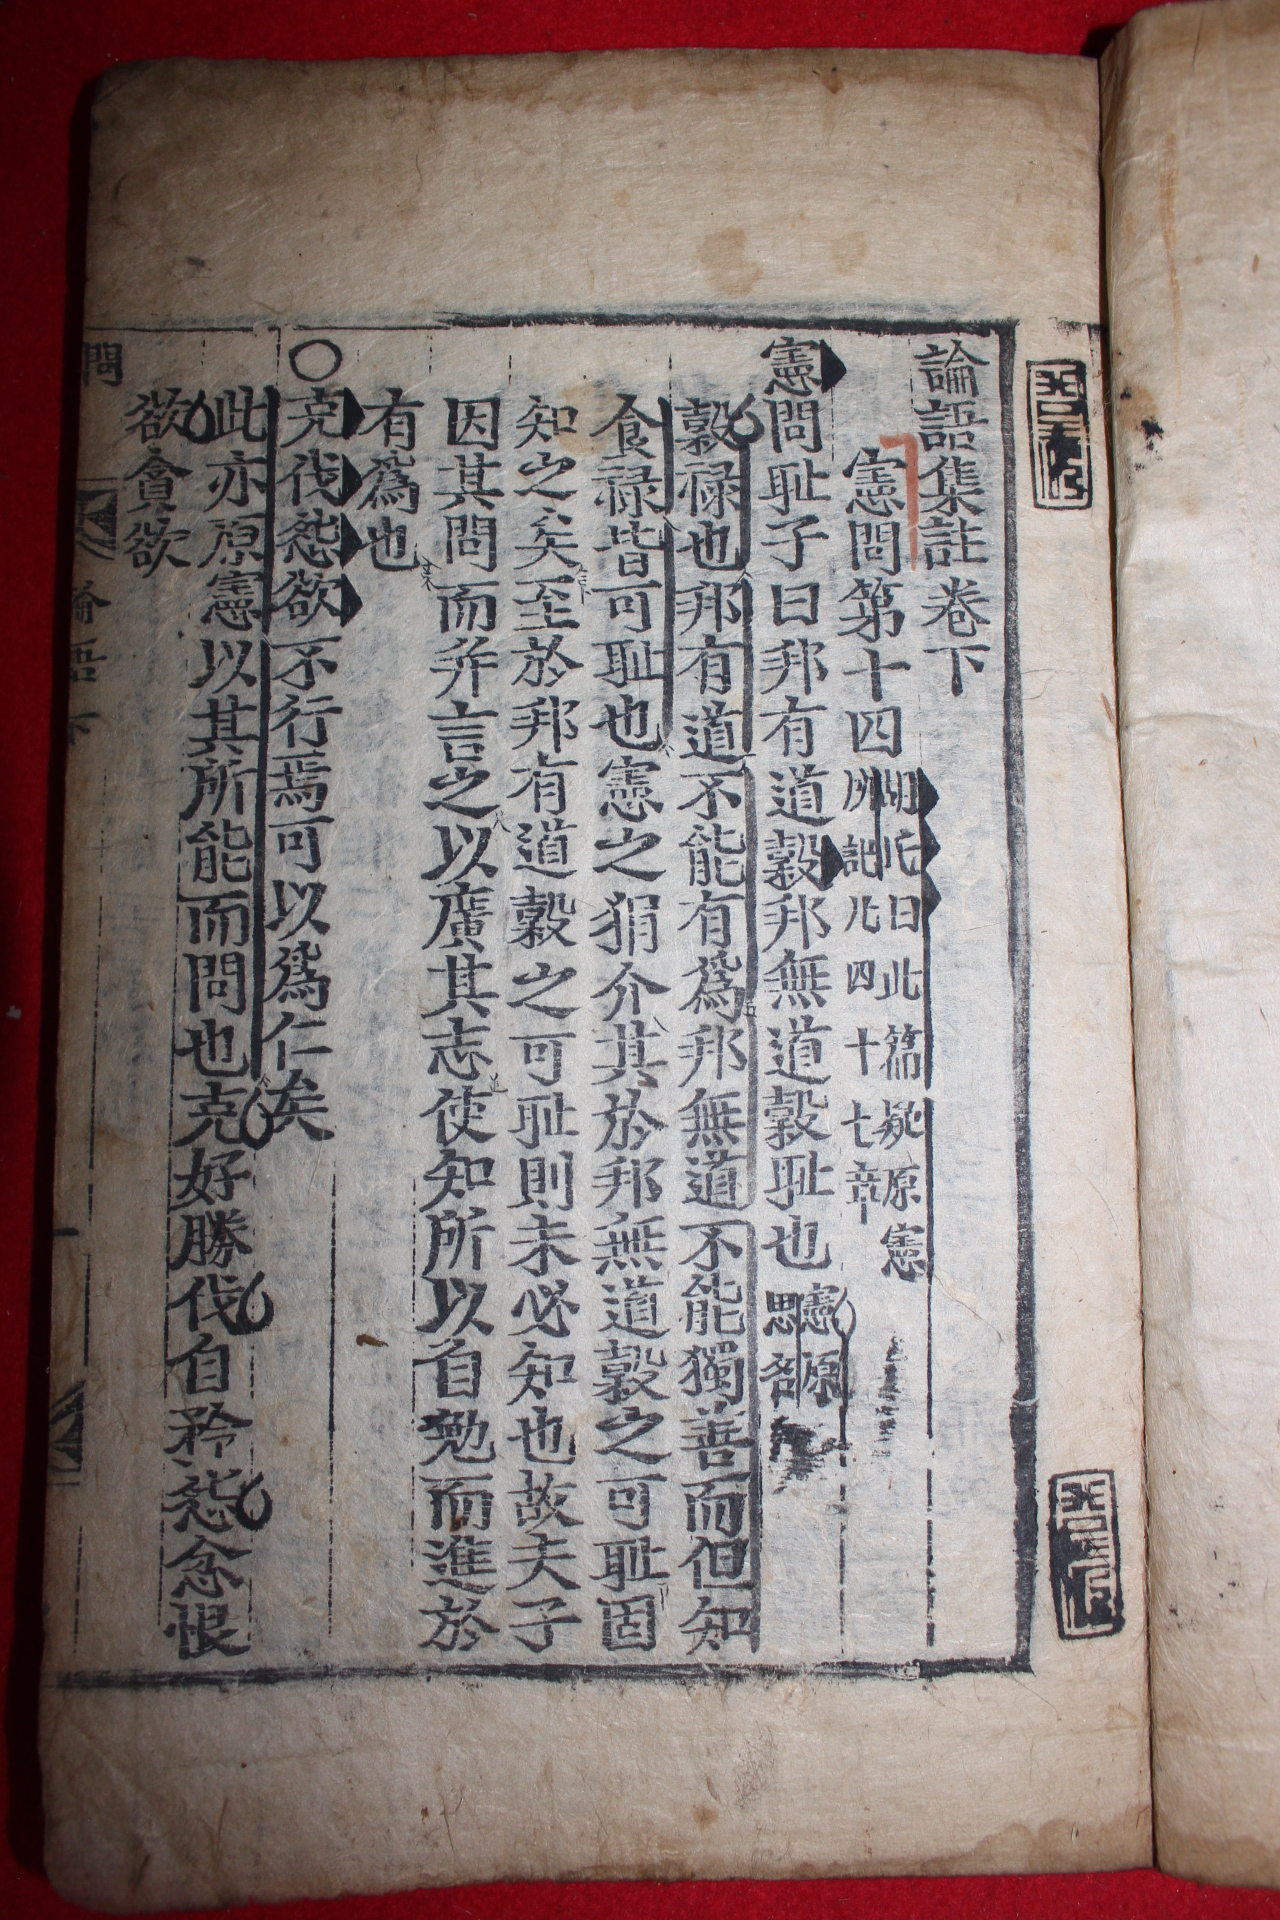 論語集註卷下
憲問第十四 胡氏曰此篇疑原憲
所記凡四十七章
憲問耻子曰邦有道穀邦無道穀耻也 憲原
思名
穀祿也邦有道不能有爲邦無道不能獨善而但知
食祿皆可耻也憲之狷介其於邦無道穀之可耻固
知之矣至於邦有道穀之可耻則未必知也故夫子
因其問而幷言之以廣其志使知所以自勉而進於
有爲也
○克伐怨欲不行焉可以爲仁矣
此亦原憲以其所能而問也克好勝伐自矜怨忿恨
欲貪欲
問
論語下